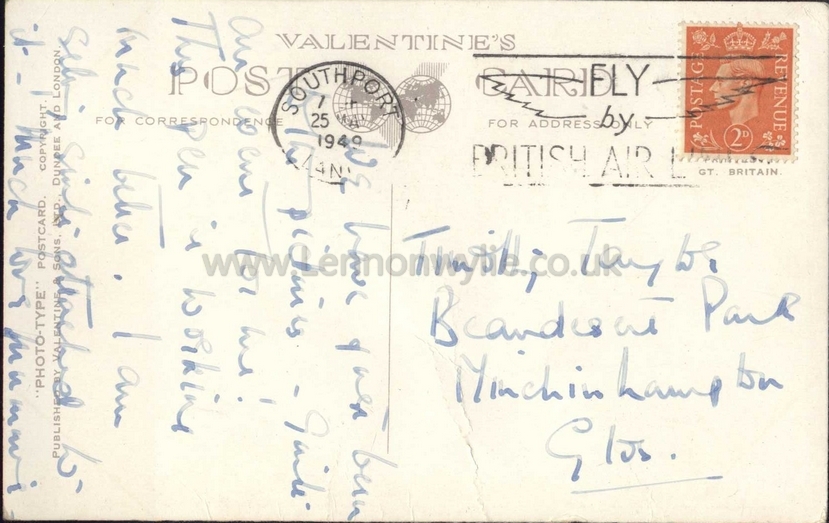 VALENTINE'S
POST CARD
FOR CORRESPONDENCE
FOR ADDRESS ONLY
SOUTHPORT
25
1949
LANC
FLY
by
BRITISH AIR
POSTAGE
REVENUE
2D
GT. BRITAIN.
We have just been
to the pictures -
an event for me!
This pen is working
much better. I am
attached to
it - Much love mummy
Timothy Taylor
Beaudesert Park
Minchinhampton
Glos.
"PHOTO-TYPE" POSTCARD. COPYRIGHT.
PUBLISHED BY VALENTINE & SONS, LTD., DUNDEE AND LONDON.
www.Lennonwylie.co.uk